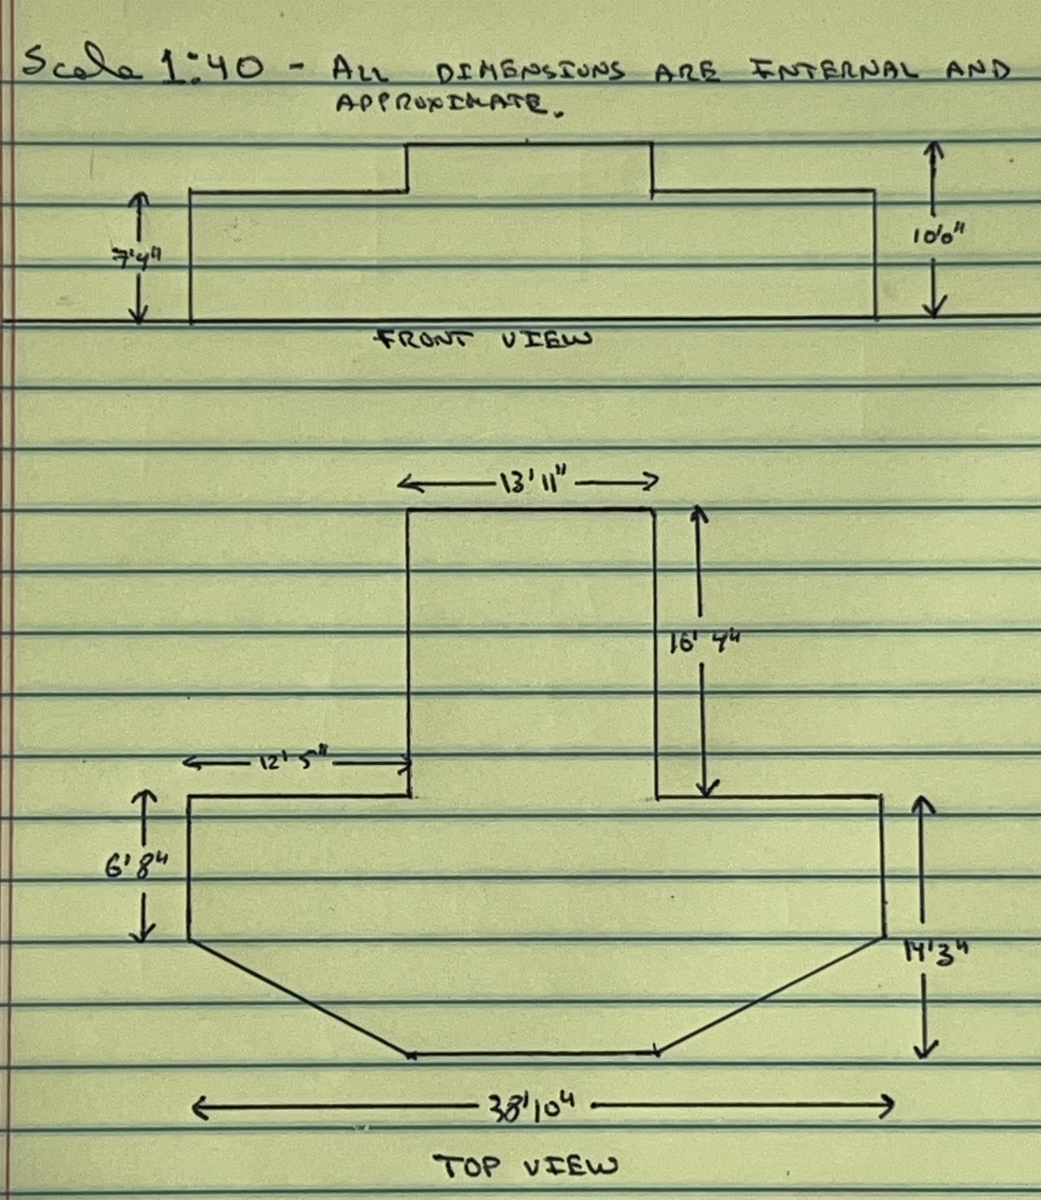 Scala 1:40 - ALL DIMENSIONS ARE INTERNAL AND
APPROXIMATE.
7'4"
10'0"
FRONT VIEW
13'11"
16'4"
12'5"
6'8"
14'3"
38'10"
TOP VIEW